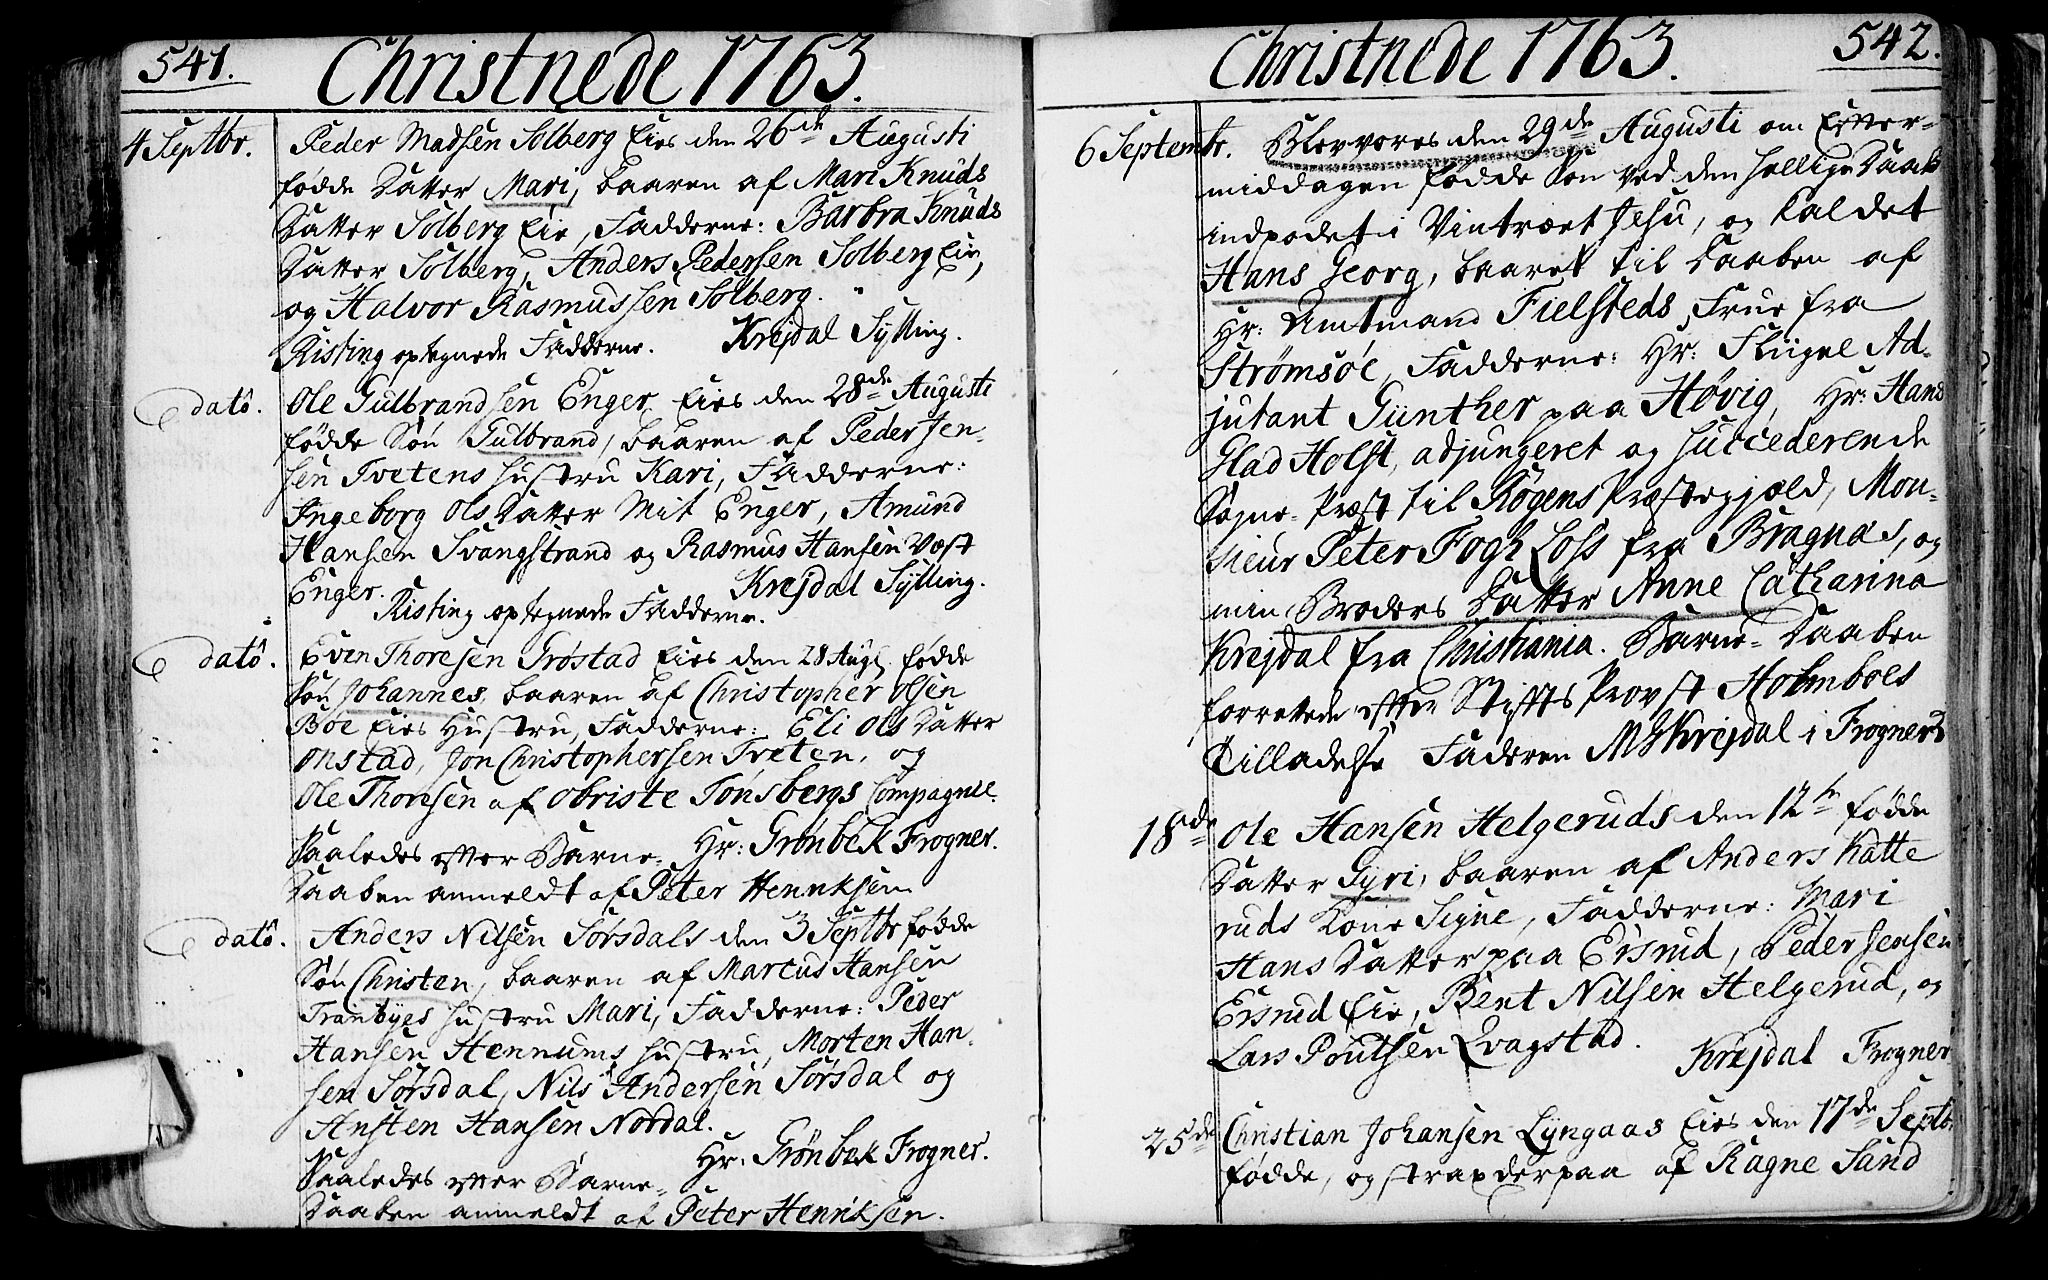 541.
Christnede 1763.
4 Septbr. Peder Madsen Solberg Eies den 26de Augusti
fødde Datter Mari, baaren af Mari Knuds
Datter Solberg Eie, Fadderne: Barbra Knuds
Datter Solberg, Anders Pedersen Solberg Eie,
og Halvor Rasmussen Solberg.
Risting optegnede Fadderne. Krejdal Sylling.
dato. Ole Gulbrandsen Enger Eies den 28de Augusti
fødde Søn Gulbrand, baaren af Peder Jen-
sen Tvetens Hustru Kari, Fadderne:
Ingeborg Ols Datter Mit Enger, Amund
Hansen Svangstrand og Rasmus Hansen Vest
Enger. Krejdal Sylling.
Risting optegnede Fadderne.
dato. Even Thoresen Grøstad Eies den 28 Aug. fødde
Søn Johannes, baaren af Christopher Olsen
Bøe Eies Hustru, Fadderne: Eli Ols Datter
Onstad, Jon Christophersen Tveten, og
Ole Thoresen af Obriste Tønsbergs Compagnie.
Saaledes efter Barne- Hr: Grønbek Frogner.
Daaben anmeldt af Peter Henriksen
dato. Anders Nilsen Sørsdals den 3 Septbr fødde
Søn Christen, baaren af Marcus Hansen
Tranbyes Hustru Mari, Fadderne: Peder
Hansen Hennums Hustru, Morten Han-
sen Sørsdal, Nils Andersen Sørsdal og
Ansten Hansen Nordal.
Hr: Grönbek Frogner.
Saaledes efter Barne-
Daaben anmeldt af Peter Henriksen.
Christnede 1763.
542.
6 Septembr. Blev vores den 29de Augusti om Efter-
middagen fødde Søn ved den hellige Daab
indpodet i Vintræet Jesu, og kaldet
Hans Georg, baaret til Daaben af
Hr: Amtmand Fielsteds Frue fra
Strømsøe, Fadderne: Hr: Flügel Ad-
jutant Günther paa Høvig, Hr: Hans
Glad Holst, adjungeret og succederende
Sogne-Præst til Røgens Præstegjæld, Mon-
sieur Peter Fogh Loss fra Bragnæs, og
min Broders Datter Anne Catharina
Krejdal fra Christiania. Barne-Daaben
forrettede efter Stifts Provst Holmboes
Tilladelse Faderen MGKrejdal i Frogner
18de Ole Hansen Helgeruds den 12te fødde
Datter Gyri, baaren af Anders Katte
ruds Kone Signe, Fadderne: Mari
Hans Datter paa Ersrud, Peder Jensen
Ersrud Eie, Bent Nilsen Helgerud, og
Lars Poulsen Qvagstad.
Krejdal Frogner
25de Christian Johansen Lyngaas Eies den 17de Septbr
fødde, og strax derpaa af Ragne Sand